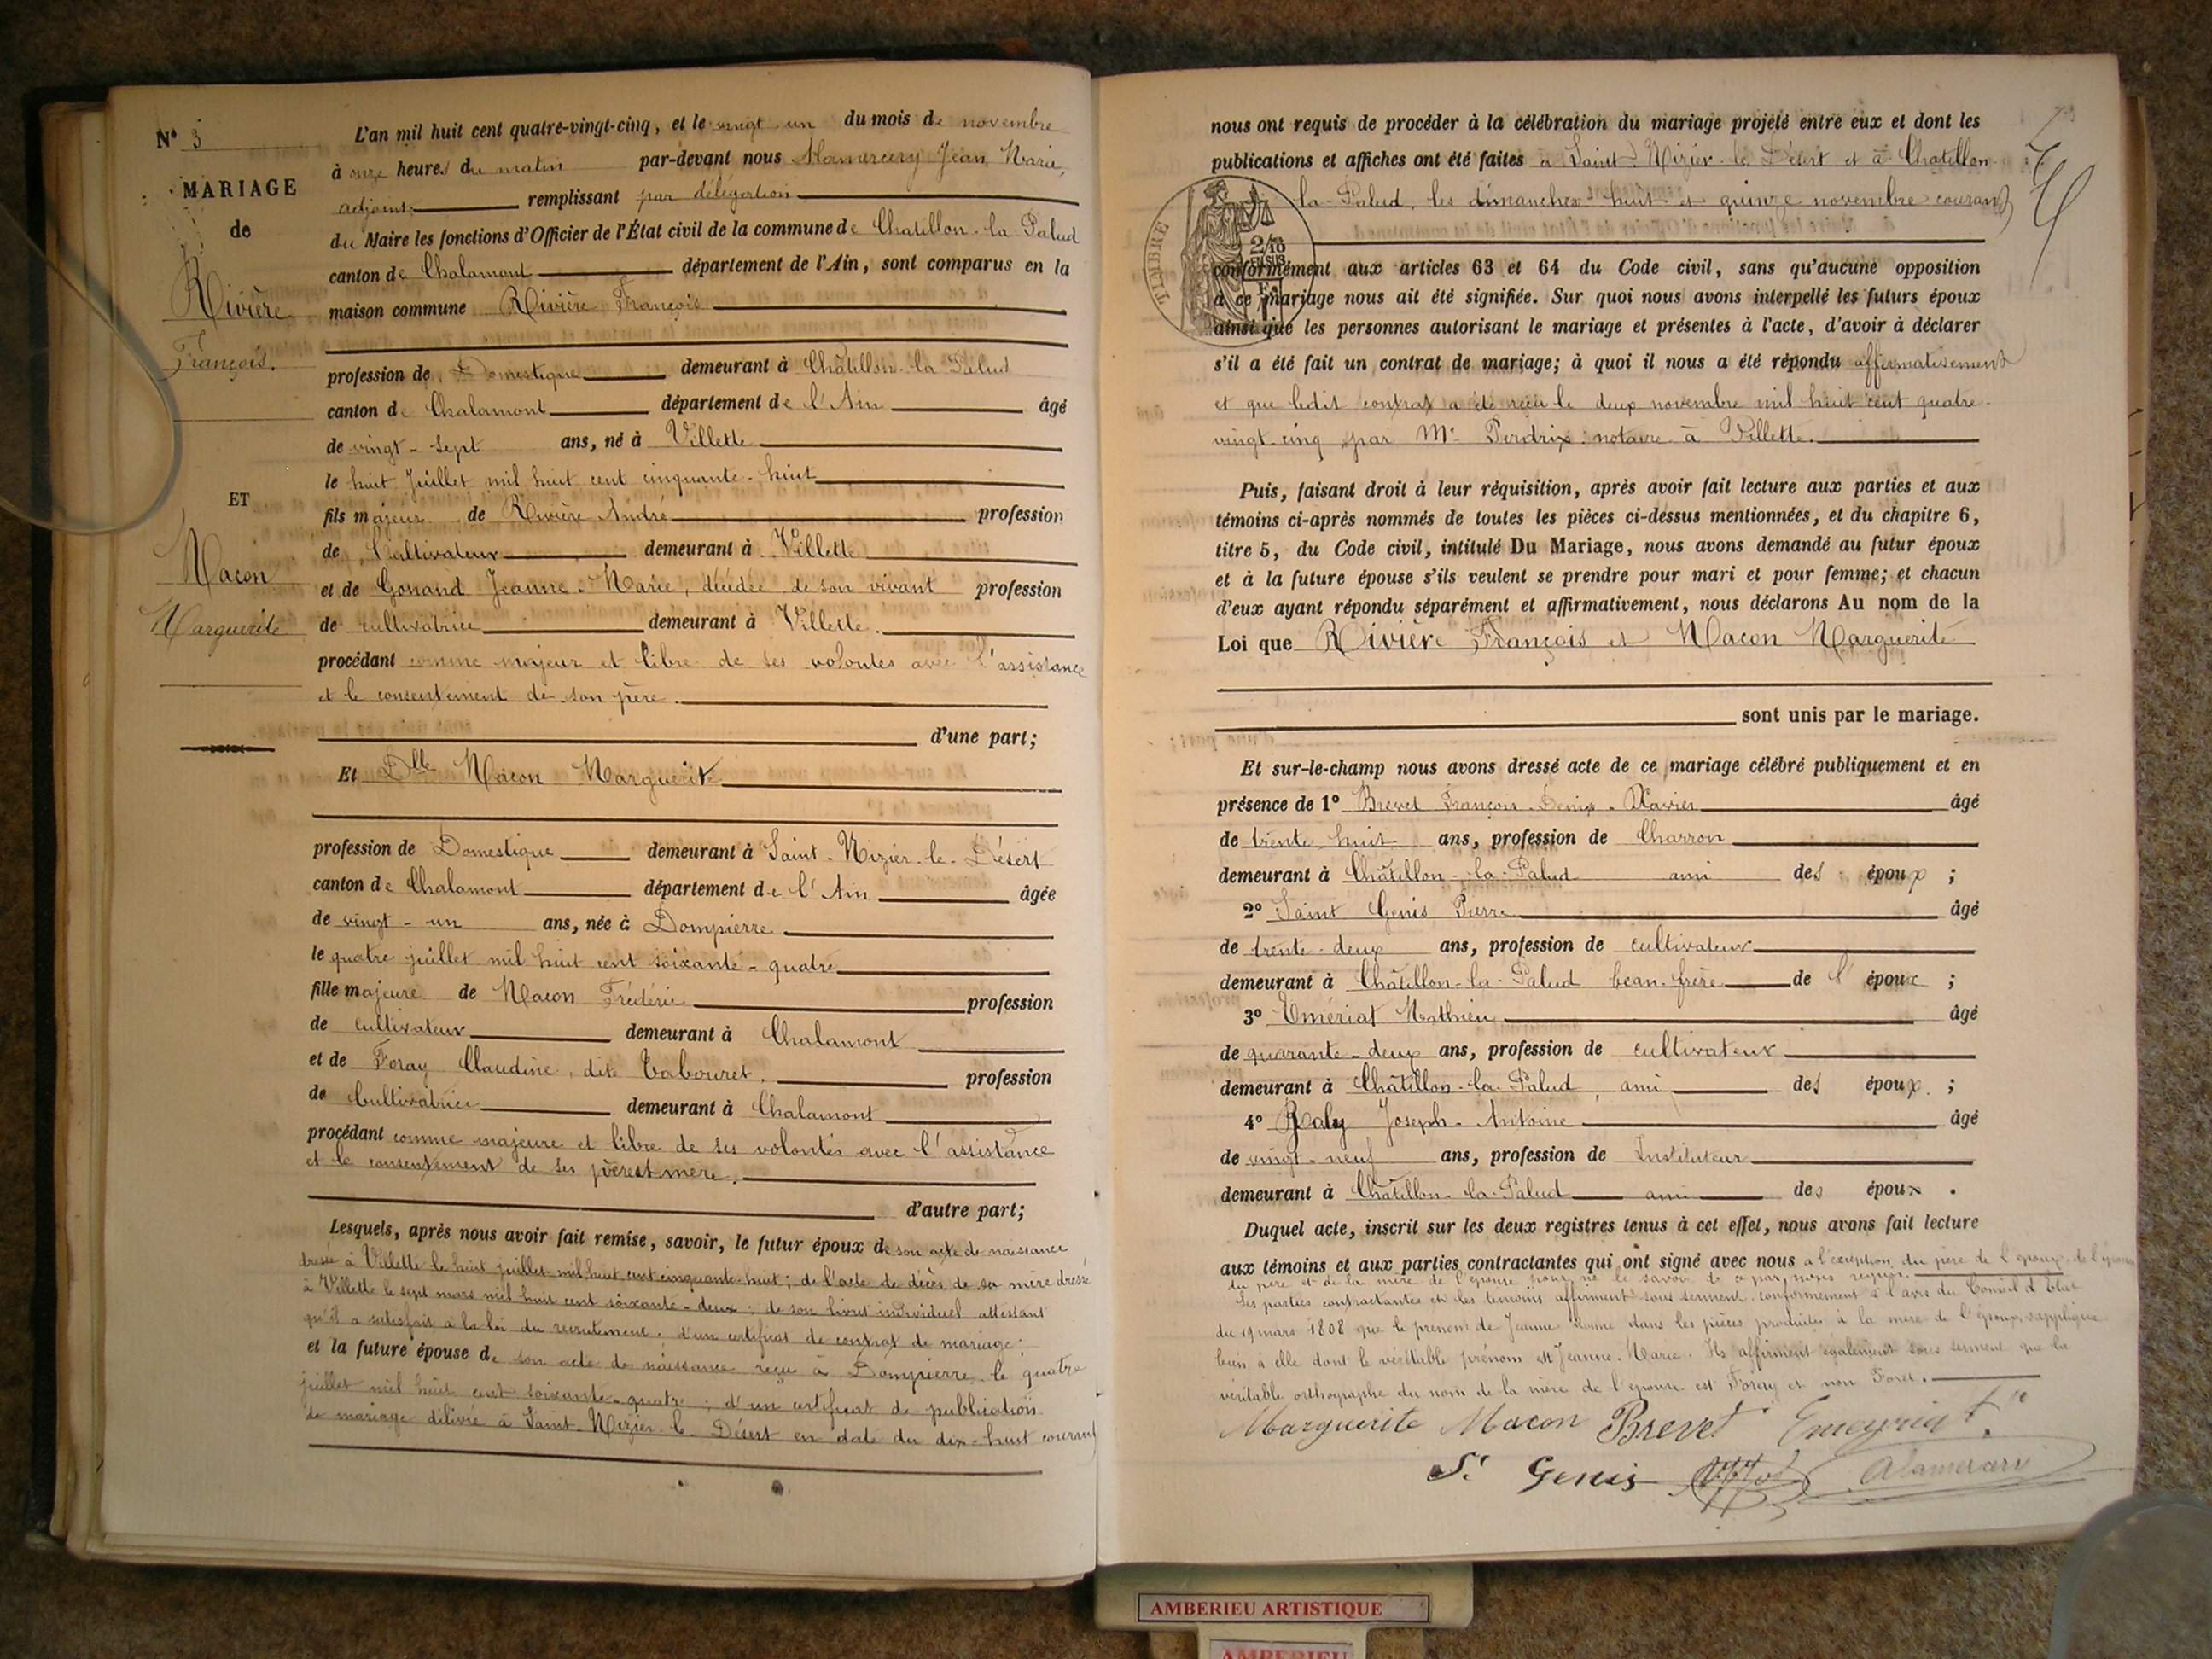 N° 3
MARIAGE
de
Rivière
François.
ET
Macon
Marguerite
L'an mil huit cent quatre-vingt-cinq, et le vingt un du mois de novembre
à onze heures du matin par-devant nous Alamercery Jean Marie,
adjoint remplissant par délégation
du Maire les fonctions d'Officier de l'État civil de la commune de Chatillon-la Palud
canton de Chalamont département de l'Ain, sont comparus en la
maison commune Rivière François
profession de Domestique demeurant à Châtillon-la Palud
canton de Chalamont département de l'Ain âgé
de vingt-sept ans, né à Villette
le huit Juillet mil huit cent cinquante-huit
fils majeur de Rivière André profession
de Cultivateur demeurant à Villette
et de Gonand Jeanne-Marie, décédée, de son vivant profession
de cultivatrice demeurant à Villette.
procédant comme majeur et libre de ses volontés avec l'assistance
et le consentement de son père.
d'une part;
Et Dlle Macon Marguerite
profession de Domestique demeurant à Saint-Nizier-le-Désert
canton de Chalamont département de l'Ain âgée
de vingt-un ans, née à Dompierre
le quatre juillet mil huit cent soixante-quatre
fille majeure de Macon Frédéric profession
de cultivateur demeurant à Chalamont
et de Foray Claudine, dite Tabouret. profession
de Cultivatrice demeurant à Chalamont
procédant comme majeure et libre de ses volontés avec l'assistance
et le consentement de ses père et mère.
d'autre part;
Lesquels, après nous avoir fait remise, savoir, le futur époux de son acte de naissance
dressé à Villette le huit juillet mil huit cent cinquante-huit; de l'acte de décès de sa mère dressé
à Villette le sept mars mil huit cent soixante-deux; de son livret individuel attestant
qu'il a satisfait à la loi du recrutement; d'un certificat de contrat de mariage;
et la future épouse de son acte de naissance reçu à Dompierre le quatre
juillet mil huit cent soixante-quatre; d'un certificat de publication
de mariage délivré à Saint-Nizier-le-Désert en date du dix-huit courant
nous ont requis de procéder à la célébration du mariage projeté entre eux et dont les
publications et affiches ont été faites à Saint-Nizier-le-Désert et à Chatillon-
la-Palud, les dimanches huit et quinze novembre courant
TIMBRE
conformément aux articles 63 et 64 du Code civil, sans qu'aucune opposition
à ce mariage nous ait été signifiée. Sur quoi nous avons interpellé les futurs époux
ainsi que les personnes autorisant le mariage et présentes à l'acte, d'avoir à déclarer
s'il a été fait un contrat de mariage; à quoi il nous a été répondu affirmativement
et que ledit contrat a été reçu le deux novembre mil huit cent quatre-
vingt-cinq par Me Perdrix notaire à Villette.
Puis, faisant droit à leur réquisition, après avoir fait lecture aux parties et aux
témoins ci-après nommés de toutes les pièces ci-dessus mentionnées, et du chapitre 6,
titre 5, du Code civil, intitulé Du Mariage, nous avons demandé au futur époux
et à la future épouse s'ils veulent se prendre pour mari et pour femme; et chacun
d'eux ayant répondu séparément et affirmativement, nous déclarons Au nom de la
Loi que Rivière François et Macon Marguerite
sont unis par le mariage.
Et sur-le-champ nous avons dressé acte de ce mariage célébré publiquement et en
présence de 1° Brevet François-Denis-Xavier âgé
de trente huit ans, profession de Charron
demeurant à Châtillon-la-Palud ami des époux ;
2° Saint Genis Pierre âgé
de trente-deux ans, profession de cultivateur
demeurant à Châtillon-la-Palud beau-frère de l'époux ;
3° Emériat Mathieu âgé
de quarante-deux ans, profession de cultivateur
demeurant à Châtillon-la-Palud, ami des époux ;
4° Joseph-Antoine âgé
de vingt-neuf ans, profession de Instituteur
demeurant à Châtillon-la-Palud ami des époux .
Duquel acte, inscrit sur les deux registres tenus à cet effet, nous avons fait lecture
aux témoins et aux parties contractantes qui ont signé avec nous à l'exception du père de l'époux, de l'époux
du père et de la mère de l'épouse pour ne le savoir de ce par nous requis.
Les parties contractantes et les témoins affirment sous serment, conformément à l'avis du Conseil d'État
du 19 mars 1808 que le prénom de Jeanne donné dans les pièces produites à la mère de l'époux s'applique
bien à elle dont le véritable prénom est Jeanne-Marie. Ils affirment également sous serment que la
véritable orthographe du nom de la mère de l'épouse est Foray et non Foret.
Marguerite Macon Brevet Emeyriat
St Genis Alamercery
AMBERIEU ARTISTIQUE
AMBERIEU